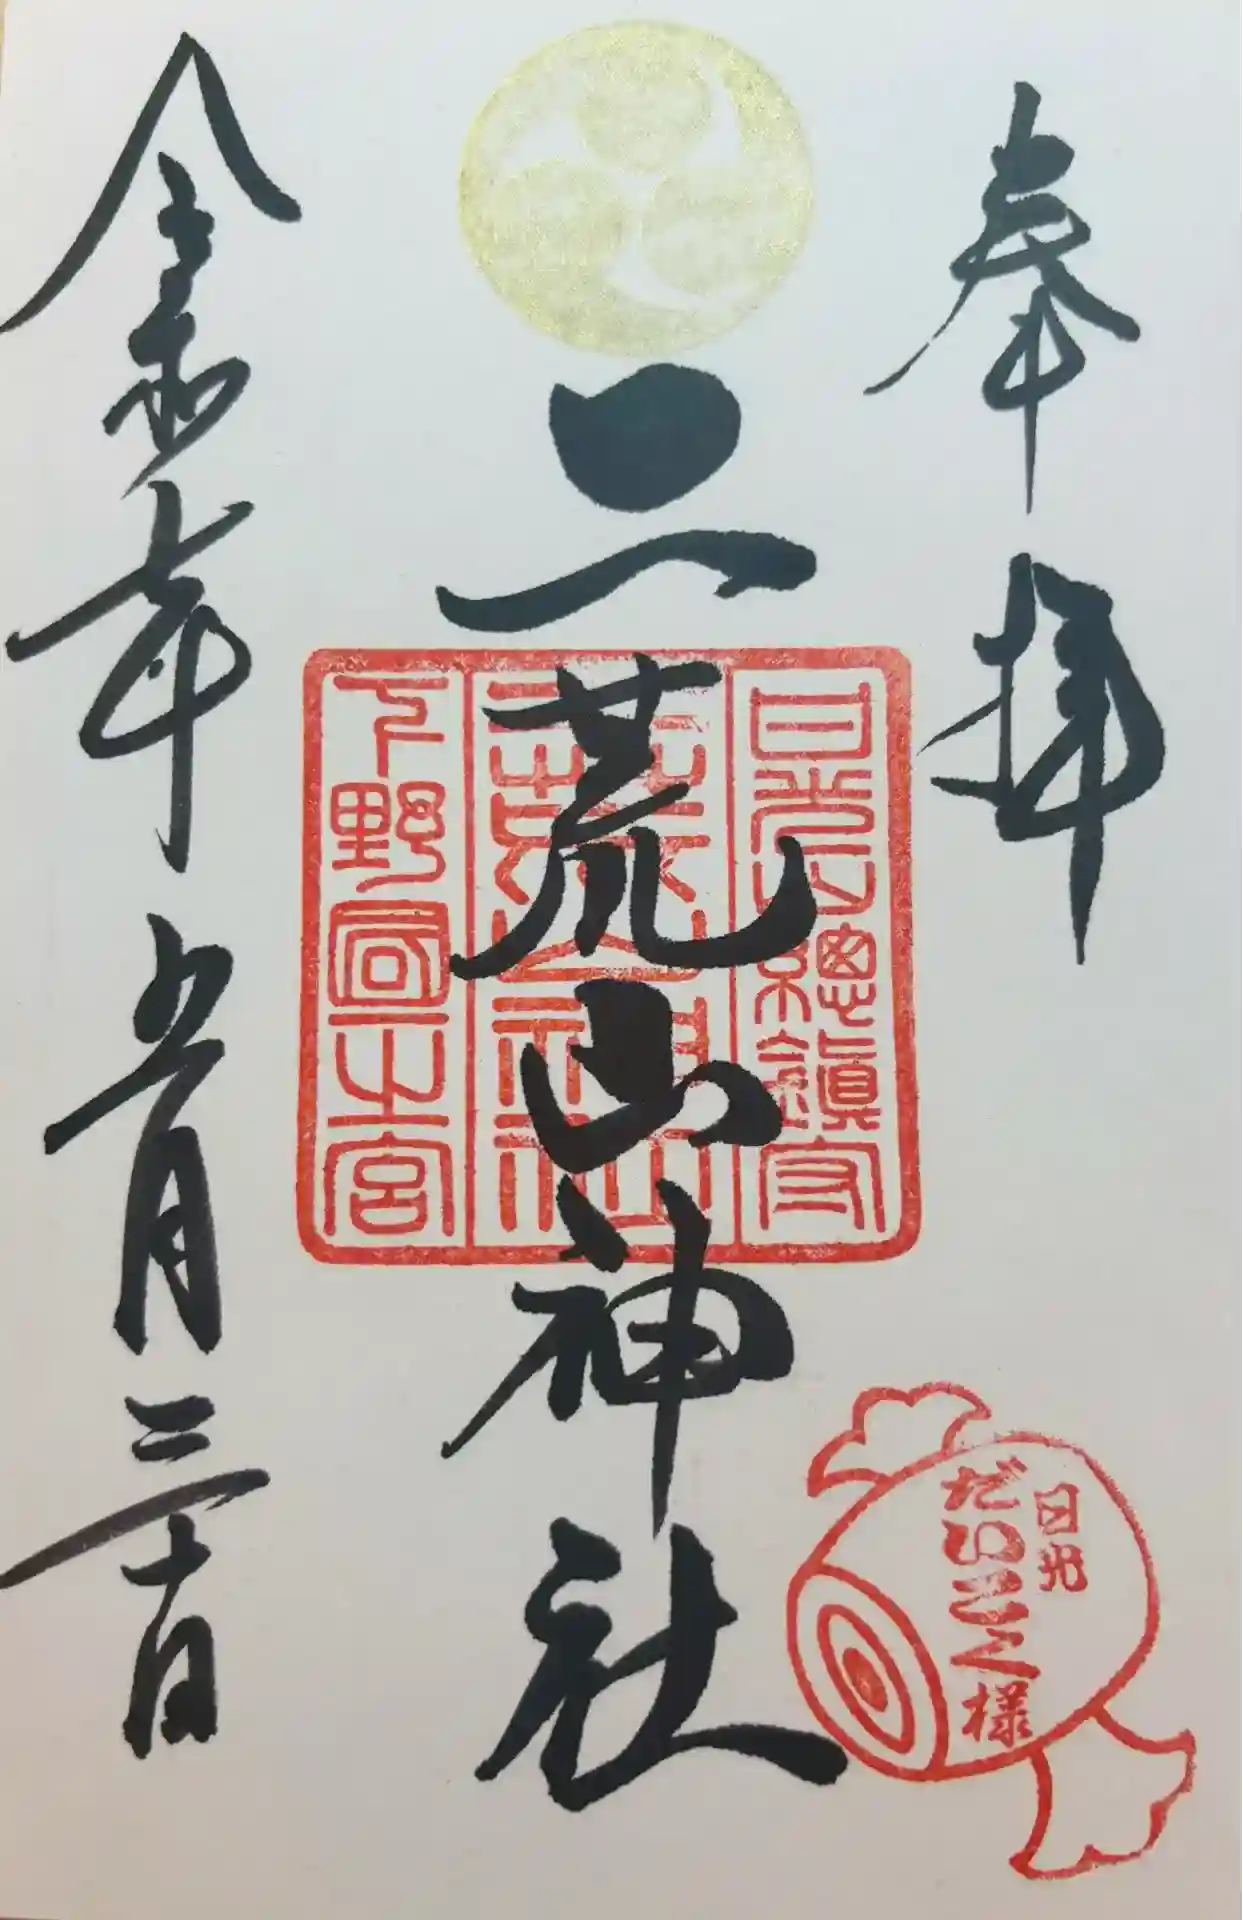 奉拝
日光總鎮守
二荒山神社
二荒山神社
下野國一之宮
令和七年五月三十日
日光
だいこく様